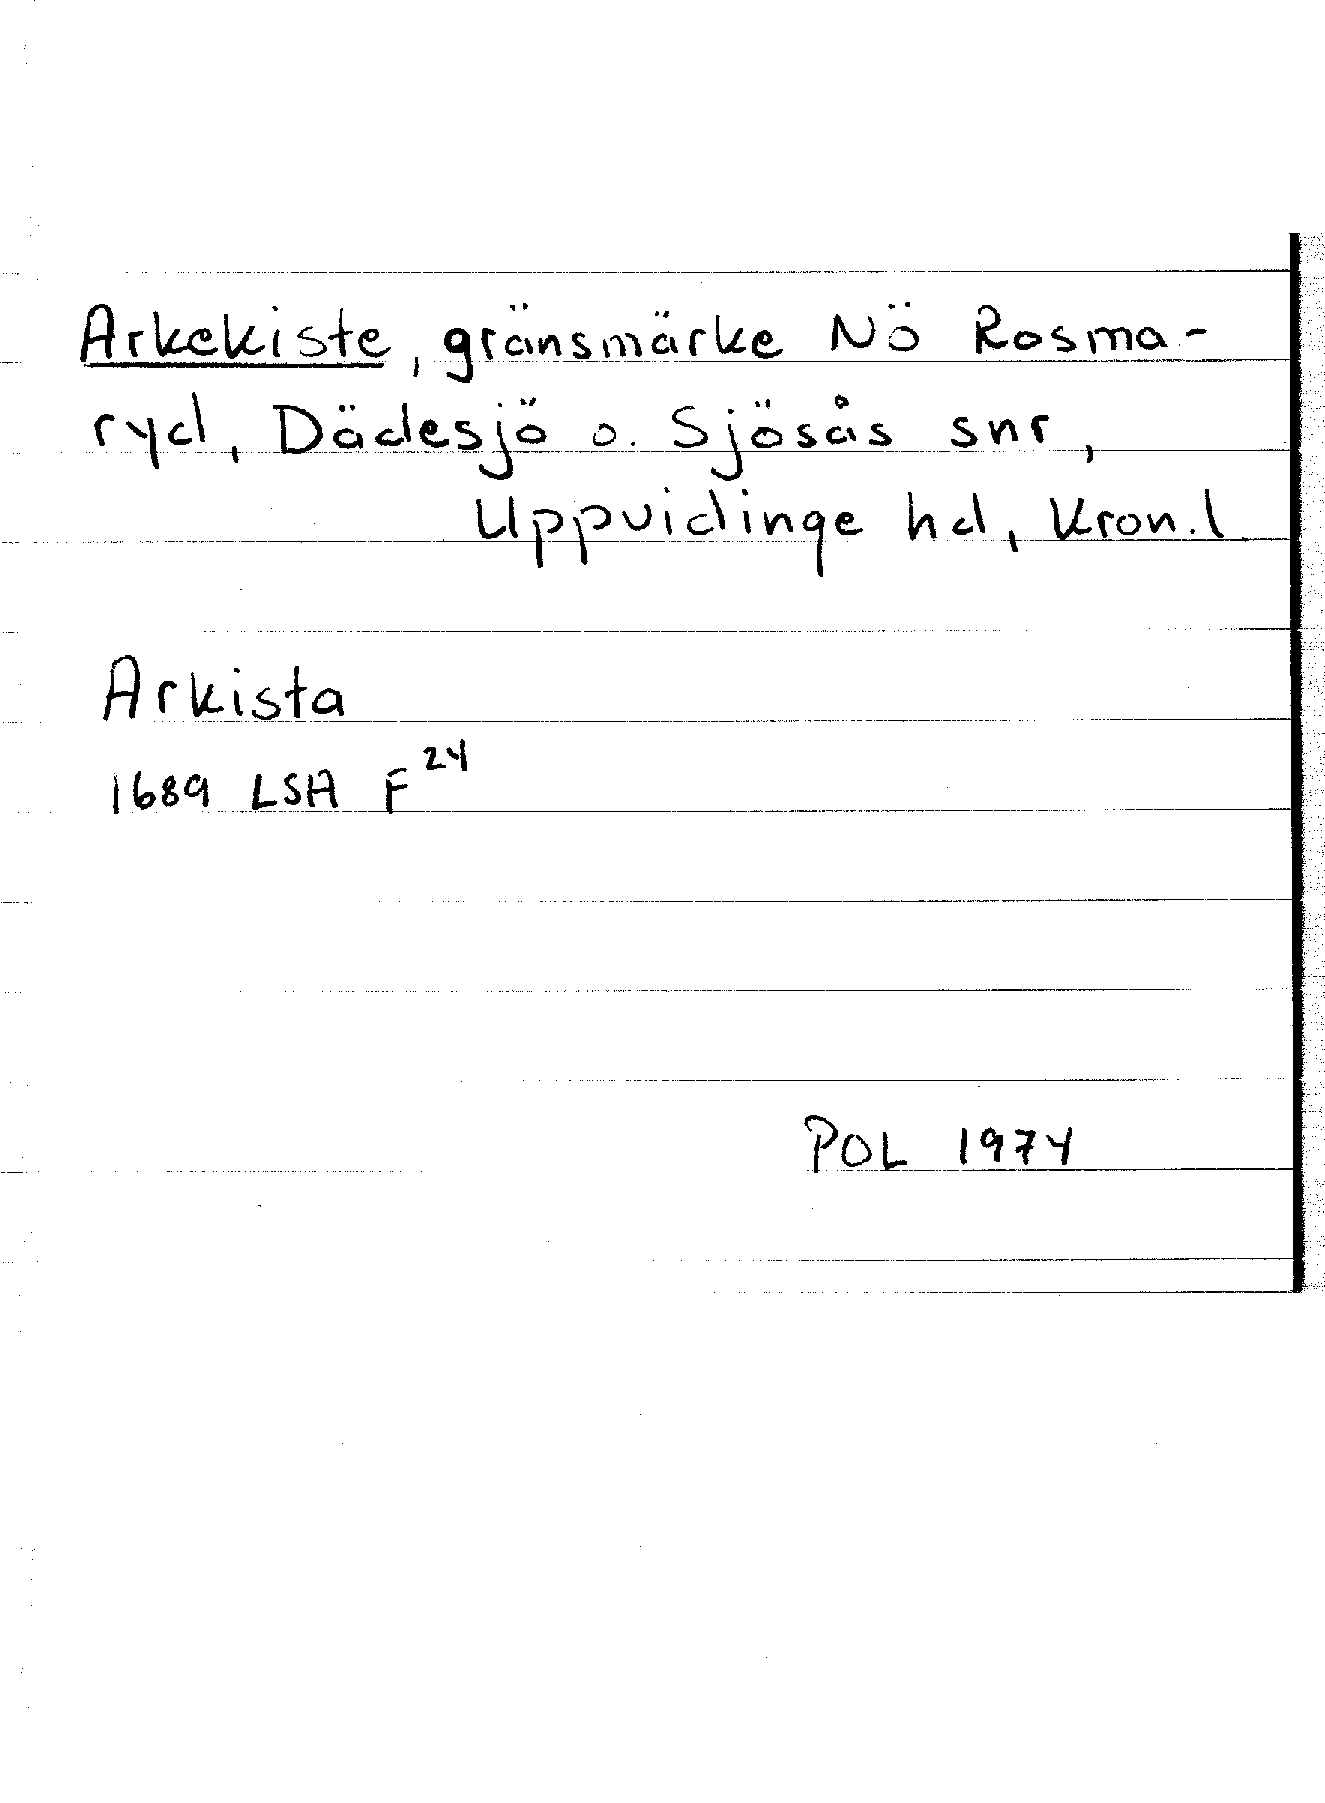 Arkekiste, gränsmärke Nö Rosma-
ryd, Dädesjö o. Sjösås snr,
Uppvidinge hd, Kron.l
Arkista
1689 LSA F 24
POL 1974